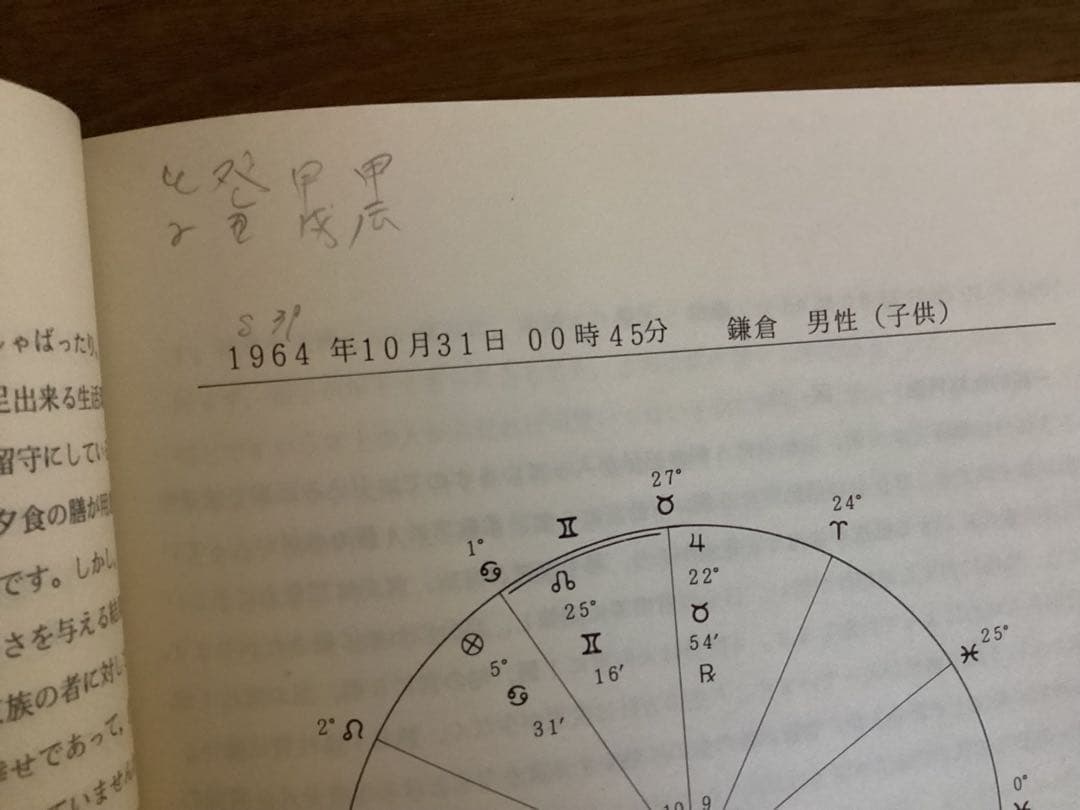 癸 甲 甲
丑 戌 辰
S 39
1964 年10月31日 00時45分 鎌倉 男性（子供）
ゃばったり、
足出来る生活
留守にしてい
夕食の膳が用
です。しかし、
さを与える
族の者に対し
幸せであって、
ていません
27°
♉
♊
24°
♈
1°
♋
♃
22°
♉
54′
℞
☊
25°
♊
16′
⊗
5°
♋
31′
25°
♓
2° ♌
0°
10 9